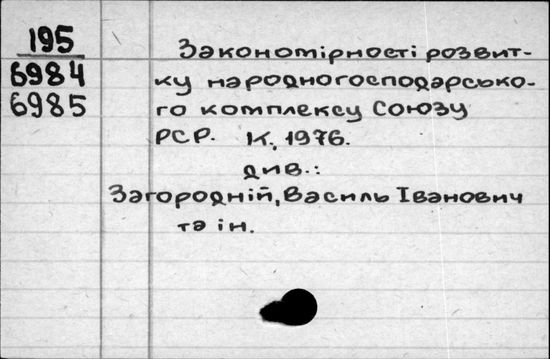 195
6984
6985
Закономірності розвит-
ку народногосподарсько-
го комплексу Союзу
РСР. К., 1976.
див.:
Загородній, Василь Іванович
та ін.